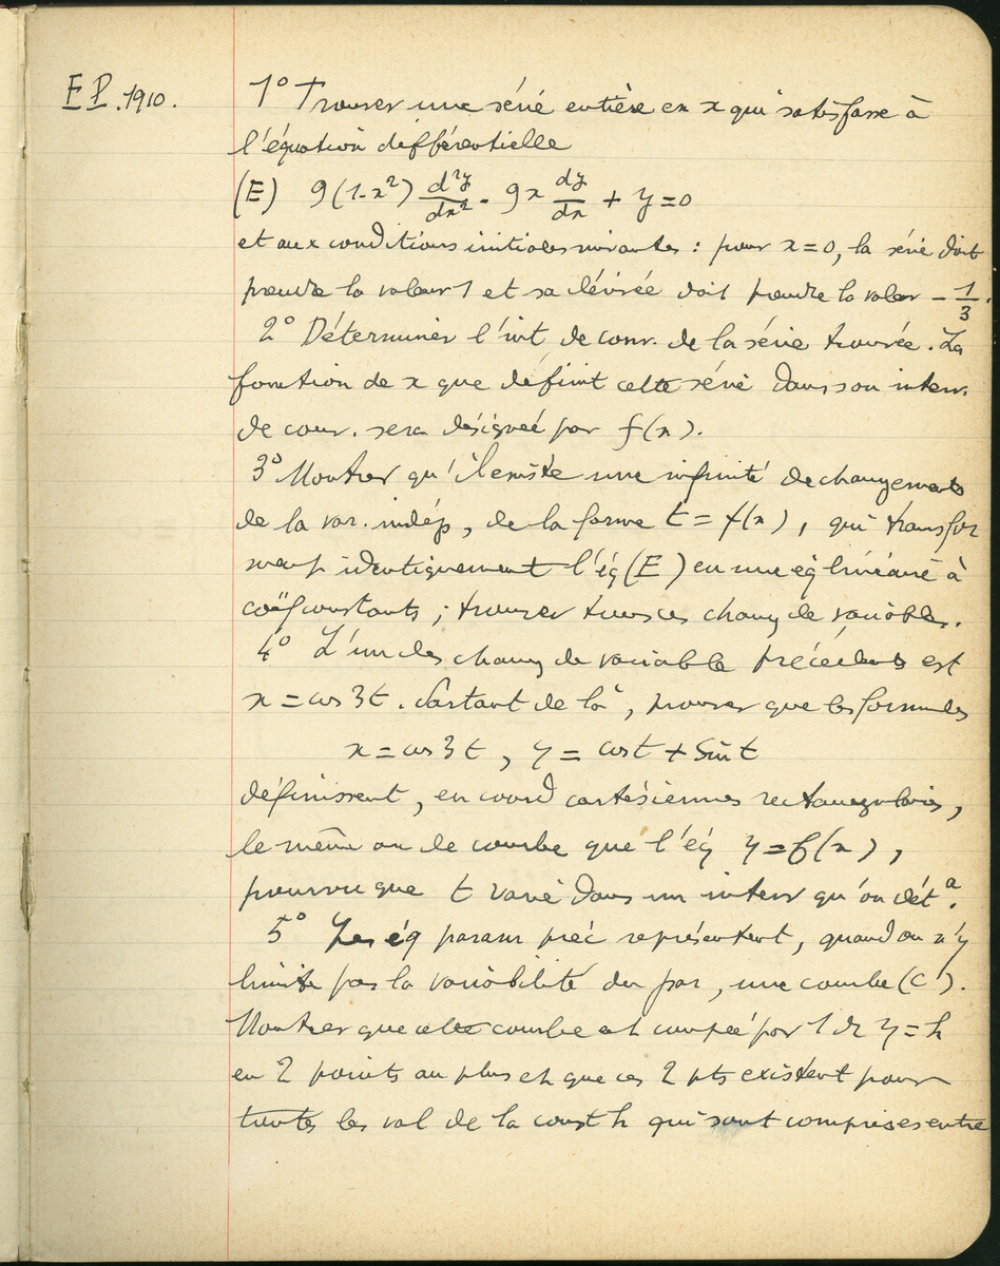 E P. 1910.
1° Trouver une série entière en x qui satisfasse à
l'équation différentielle
(E) 9(1-x²) d²y/dx² - 9x dy/dx + y = 0
et aux conditions initiales suivantes : pour x = 0, la série doit
prendre la valeur 1 et sa dérivée doit prendre la valeur - 1/3.
2° Déterminer l'int de conv. de la série trouvée. La
fonction de x que définit cette série dans son interv.
de conv. sera désignée par f(x).
3° Montrer qu'il existe une infinité de changements
de la var. indép, de la forme t = f(x), qui transfor
ment identiquement l'éq (E) en une éq linéaire à
coëf constants ; trouver tous ces chang de variables.
4° L'un des chang de variable précédents est
x = cos 3t. Partant de là, prouver que les formules
x = cos 3t, y = cos t + sin t
définissent, en coord cartésiennes rectangulaires,
le même arc de courbe que l'éq y = f(x),
pourvu que t varie dans un interv qu'on dét a.
5° Les éq param préc représentent, quand on n'y
limite pas la variabilité du par, une courbe (C).
Montrer que cette courbe est coupée par 1 dr y = h
en 2 points au plus et que ces 2 pts existent pour
toutes les val de la const h qui sont comprises entre